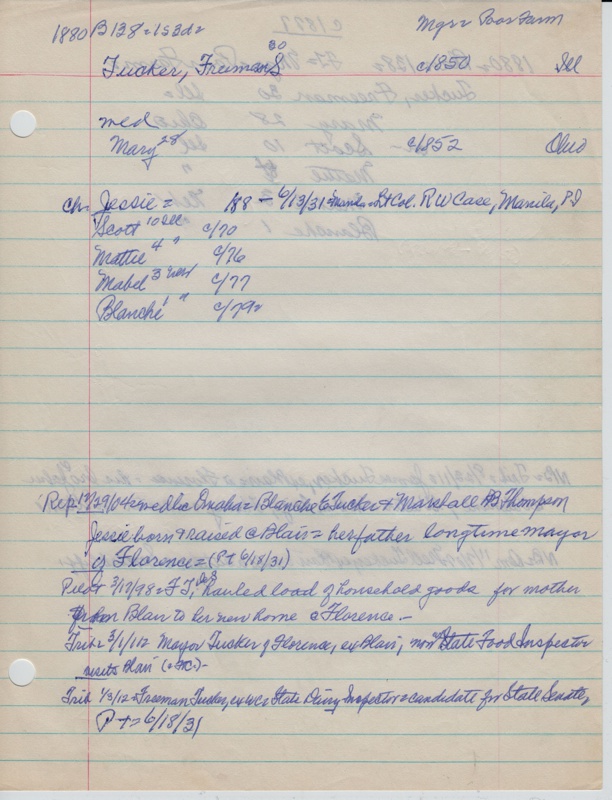 c1877
1880 B138=153d= Mgr= Poor Farm
Tucker, Freeman S 30 c1850 Ill
med
Mary 28 c1852 Ohio
ch. Jessie = 188 - 6/13/31 = Manila = Lt Col. R W Case, Manila, P I
Scott 10 Ill c/70
Mattie 4 " c/76
Mabel 3 c/77
Blanche 1 " c/79=
Rep. 12/29/04 = med c Omaha = Blanche G Tucker & Marshall B Thompson
Jessie born & raised c Blair = her father longtime mayor
of Florence = (P-t 6/18/31)
Pilot 3/17/98 = F T, hauled load of household goods for mother
from Blair to her new home c Florence. -
Trib = 3/1/112 Mayor Tucker of Florence, ex Blair, now State Food Inspector
visits Blair
Trib 1/3/12 = Freeman Tucker, ex WC = State Dairy Inspector = candidate for State Senate,
P-t = 6/18/31